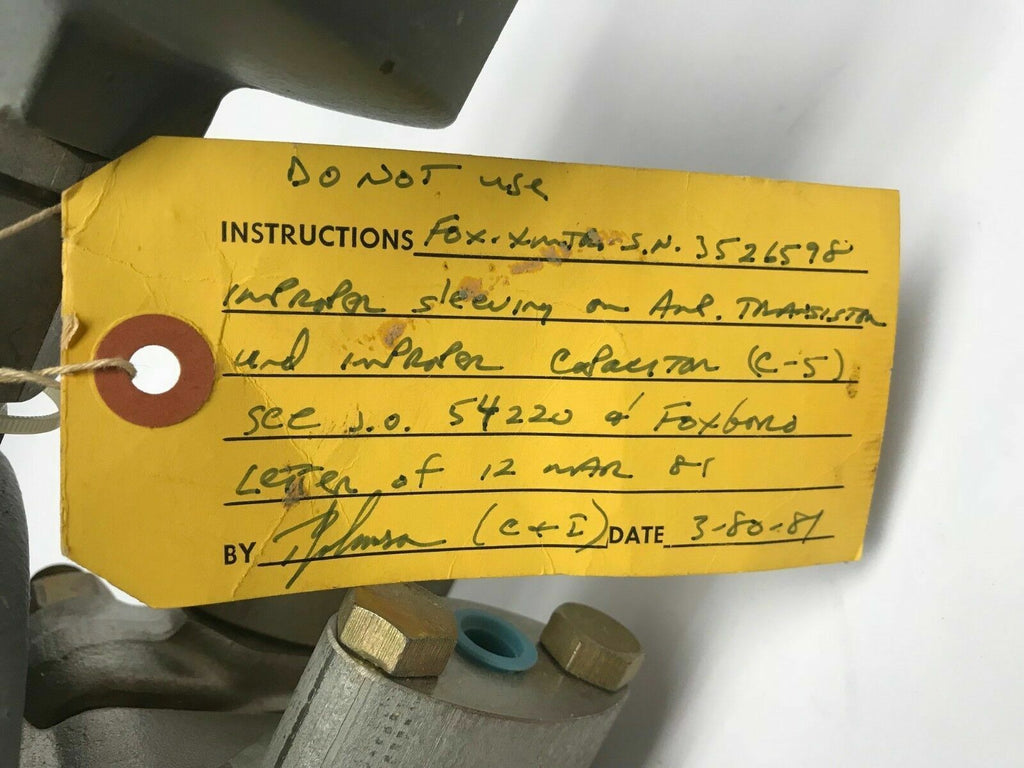 DO NOT use
INSTRUCTIONS Fox. Xmtr. S.N. 3526598
improper sleeving on Amp. TRANSISTOR
and improper Capacitor (C-5)
see J.O. 54220 & Foxboro
Letter of 12 MAR 81
BY Johnson (C & I) DATE 3-80-81